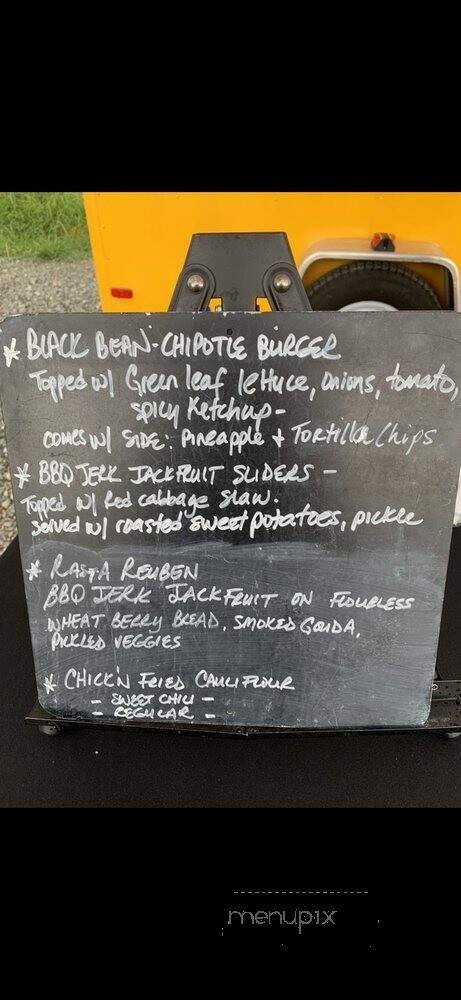 * BLACK BEAN-CHIPOTLE BURGER
Topped w/ Green leaf lettuce, onions, tomato,
spicy Ketchup-
comes w/ SIDE: Pineapple + Tortilla Chips
* BBQ JERK JACKFRUIT SLIDERS -
Topped w/ Red cabbage slaw.
served w/ roasted sweet potatoes, pickle
* RASTA REUBEN
BBQ JERK JACKFRUIT ON FLOURLESS
WHEAT BERRY BREAD, SMOKED GOUDA,
PICKLED VEGGIES
* CHICK'N FRIED CAULIFLOUR
- SWEET CHILI -
- REGULAR -
menupix